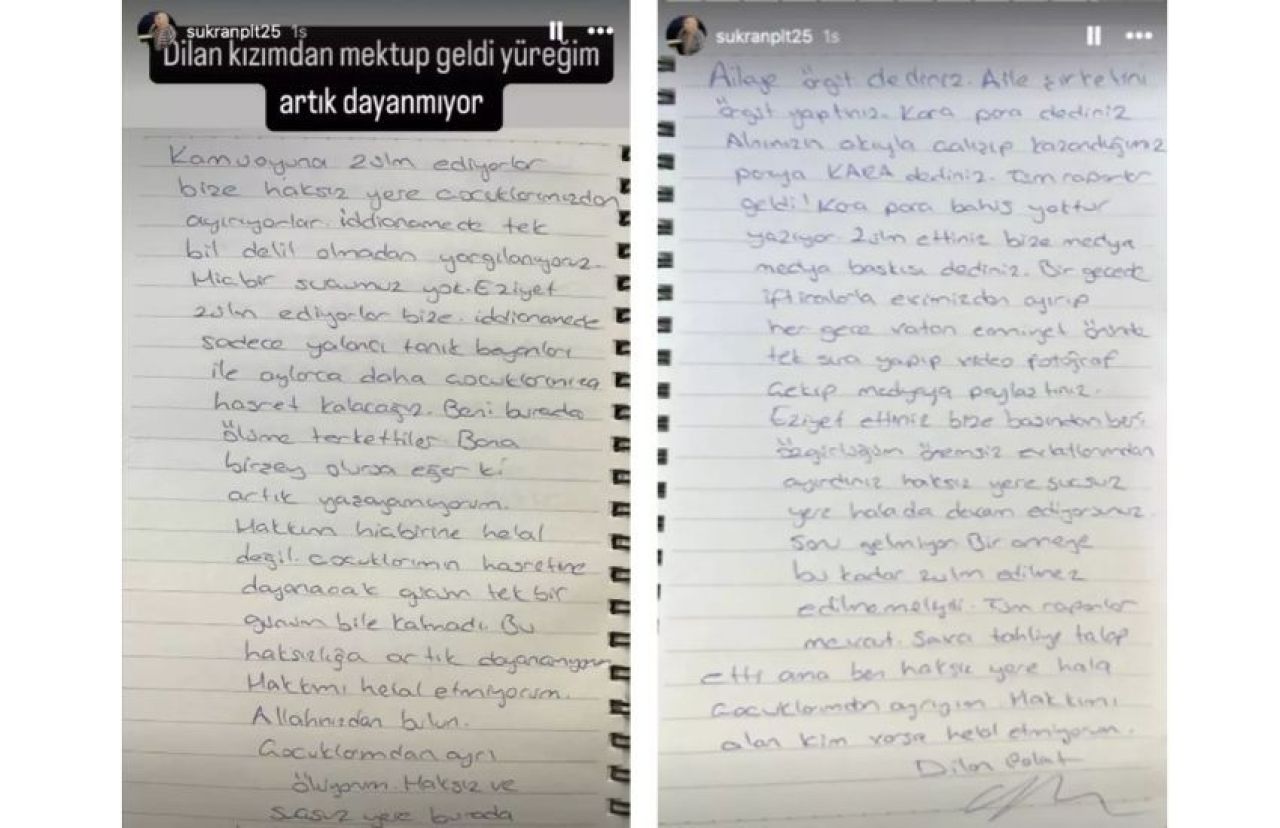 sukranplt25 1s
Dilan kızımdan mektup geldi yüreğim
artık dayanmıyor
Kamuoyuna zulm ediyorlar
bize haksız yere çocuklarımızdan
ayırıyorlar. iddianamede tek
bil delil olmadan yargılanıyoruz.
Hiçbir suçumuz yok. Eziyet
zulm ediyorlar bize. iddianamede
sadece yalancı tanık beyanları
ile aylarca daha çocuklarımıza
hasret kalacağız. Beni burada
ölüme terkettiler Bana
birşey olursa eğer ki
artık yazayamıyorum.
Hakkım hiçbirine helal
değil. çocuklarımın hasretine
dayanacak gücüm tek bir
günüm bile kalmadı. Bu
haksızlığa artık dayanamıyorum
Hakkımı helal etmiyorum.
Allahınızdan bulun.
Çocuklarımdan ayrı
ölüyorum Haksız ve
suçsuz yere burada
sukranplt25 1s
Aileye örgüt dediniz. Aile şirketini
örgüt yaptınız. Kara para dediniz
Alnımızın akıyla çalışıp kazandığımız
paraya KARA dediniz. Tüm raporlar
geldi! Kara para bahis yoktur
yazıyor. Zulm ettiniz bize medya
medya baskısı dediniz. Bir gecede
iftiralarla evimizden ayırıp
her gece vatan emniyet önünde
tek sıra yapıp video fotoğraf
Çekip medyaya paylaştınız.
Eziyet ettiniz bize başından beri
özgürlüğüm önemsiz evlatlarımdan
ayırdınız haksız yere suçsuz
yere hala da devam ediyorsunuz.
Sonu gelmiyor Bir anneye
bu kadar zulm edilmez
edilmemeliydi. Tüm raporlar
mevcut. Savcı tahliye talep
etti ama ben haksız yere hala
Çocuklarımdan ayrıyım. Hakkımı
alan kim varsa helal etmiyorum.
Dilan Polat